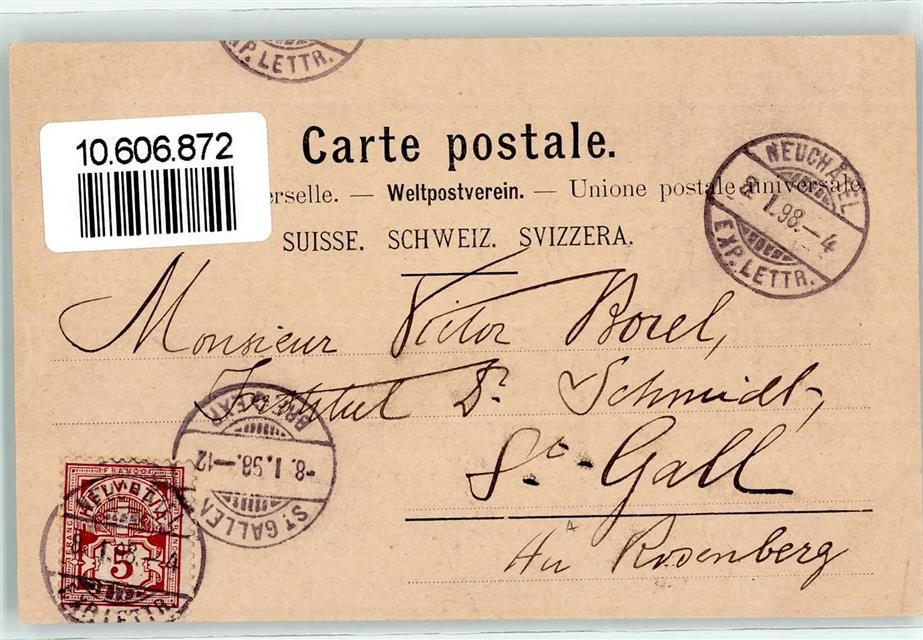 EXP. LETTR.
10.606.872
Carte postale.
erselle. — Weltpostverein. — Unione postale universale
SUISSE. SCHWEIZ. SVIZZERA.
NEUCHATEL
8. I. 98. – 4
EXP. LETTR.
Monsieur Victor Borel,
Institut Dr. Schmidt,
St. Gall
Rosenberg
BRF. EXP.
-8. I. 98. – 12
ST. GALLEN
FRANCO
HELVETIA
8. I. 98. – 4
5
EXP. LETTR.